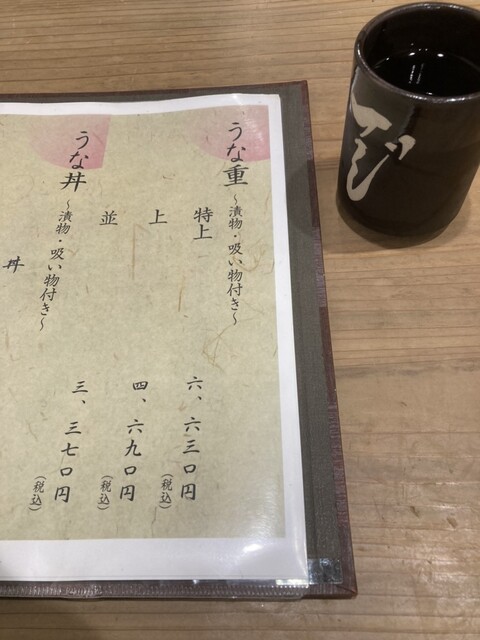 うな重
～漬物・吸い物付き～
特上
六、六三〇円
(税込)
上
四、六九〇円
(税込)
並
三、三七〇円
(税込)
うな丼
～漬物・吸い物付き～
丼